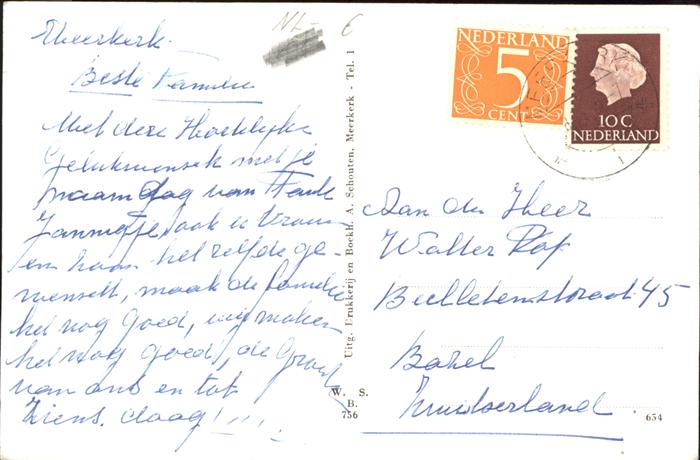 NL- 6
Meerkerk.
Beste Familie
Met deze Hartelijke
Gelukwensch met je
naamdag van Tante
Jannetje ook u Vrouw
en haar het zelfde ge-
wenscht, maak de familie
het nog goed, wij maken
het nog goed, de Groet
van ons en tot
ziens. daag!!!!
Uitg. Drukkerij en Boekh. A. Schouten, Meerkerk - Tel. 1
W. S.
B.
756
NEDERLAND
5
CENT
10 C
NEDERLAND
Aan den Heer
Walter
45
Bazel
Zwitserland
654